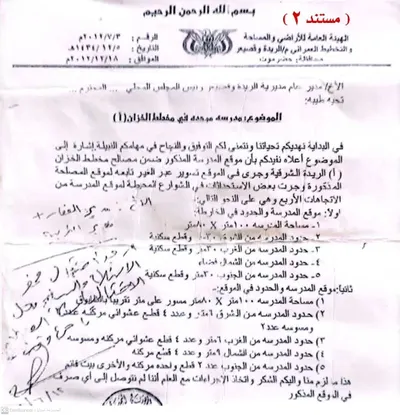 ( مستند ٢ )
بسم الله الرحمن الرحيم
الهيئة العامة للأراضي والمساحة
والتخطيط العمراني م/الريدة وقصيعر
محافظة/ حضرموت
الرقم: ٢٠١٢/٧/٣م
التاريخ: ١٤٣٤/١٢/٥هـ
الموافق: ٢٠١٢/١٢/١٨م
الأخ/ مدير عام مديرية الريدة وقصيعر ورئيس المجلس المحلي المحترم
تحية طيبه:
الموضوع: مدرسه مرحده في مخطط الخزان (أ)
في البداية نهديكم تحياتنا ونتمنى لكم التوفيق والنجاح في مهامكم النبيلة إشارة إلى
الموضوع أعلاه نفيدكم بأن موقع المدرسة المذكور ضمن مصالح مخطط الخزان
(أ) الريدة الشرقية وجرى في الموقع تسوير عبر الغير تابعه لموقع المصلحة
المذكورة وجرت بعض الاستحداثات في الشوارع المحيطة لموقع المدرسة من
الاتجاهات الأربع وهي على النحو التالي:
اولاً: موقع المدرسة والحدود في الخارطة:
١- مساحة المدرسة ١٠٠متر X ٨٠متر
٢- حدود المدرسه من الشرق وقطع سكنية
٣- حدود المدرسه من الغرب ٣٠متر وقطع سكانية
٤- حدود المدرسه من الشمال فضاء
٥- حدود المدرسه من الجنوب ٢٠متر وقطع سكانية
ثانيا: موقع المدرسه والحدود في الواقع:
١) مساحة المدرسه ١٠٠متر X ٨٠متر مسور على متر تقريبا
٢) حدود المدرسه من الشرق ٦متر وعدد ٤ قطع عشوائي مركنه
ومسوسه عدد٢
٣) حدود المدرسه من الغرب ٦متر وعدد ٤ قطع عشوائي مركنه ومسوسه
٤) حدود المدرسه من الشمال ٦متر وعدد ٤ قطع مركنه
٥) حدود المدرسه من الجنوب عدد ٢ قطع ولحده مركنه والأخرى بيت قائم
هذا ما لزم منا واليكم الشكر واتخاذ الإجراءات مع العلم أننا لم نتوصل إلى أي صرف
في الموقع المذكور